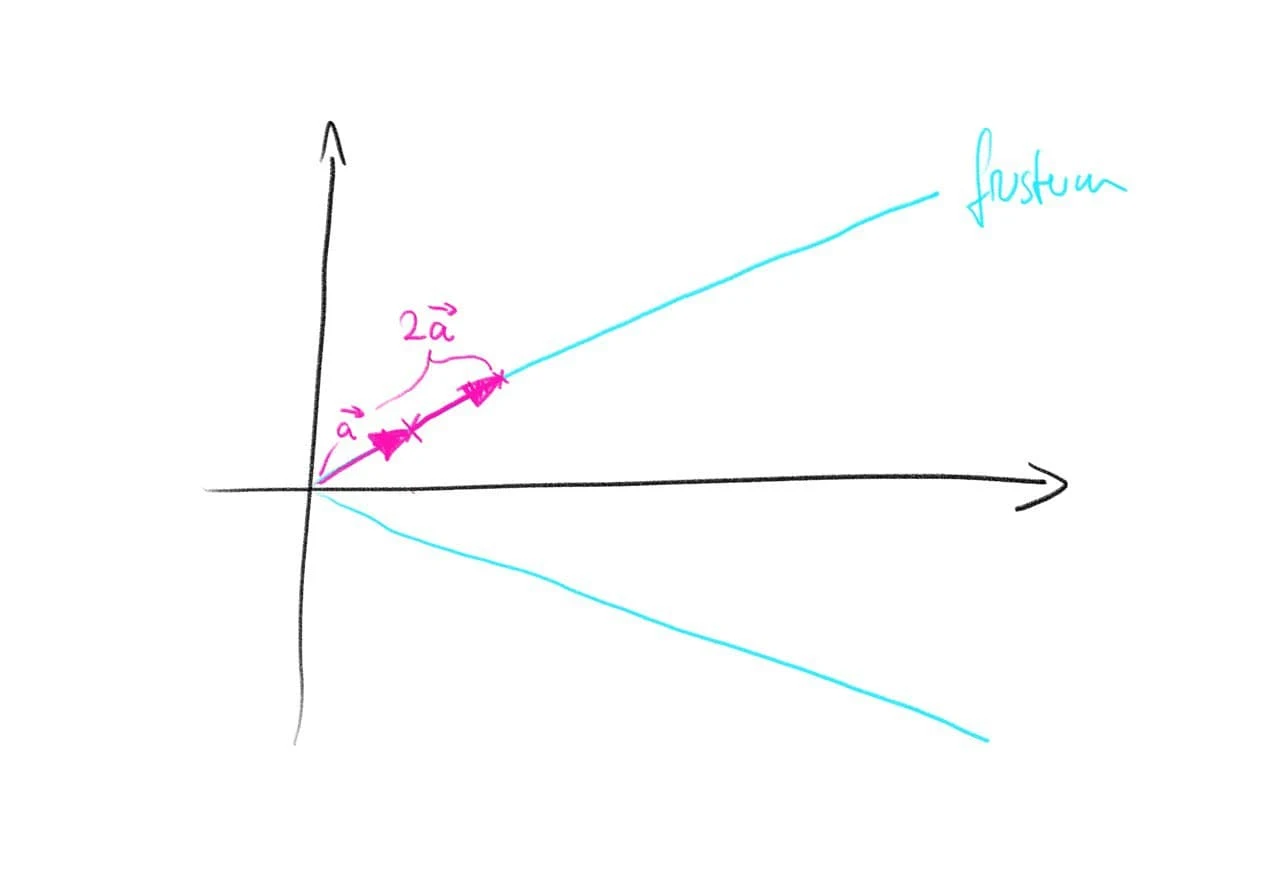 frustum
2a⃗
a⃗